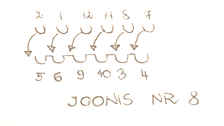 2 1 12 11 8 7
5 6 9 10 3 4
JOONIS NR 8